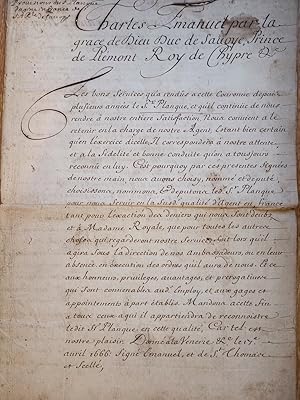 Provisions du S. Planque
Charles Emanuel par la
grace de Dieu Duc de Savoye, Prince
de Piemont Roy de Chypre &c
Les bons Services qu'a rendus a cette Couronne depuis
plusieurs années le S. Planque, et qu'il continue de nous
rendre à notre entiere Satisfaction Nous convient a le
retenir en la charge de notre Agent, Estant bien certain
qu'en l'exercice d'icelle, Il correspondera à nostre attente
et a la fidelité et bonne conduite qu'on a toujours
reconnu en luy. C'est pourquoy par ces presentes Signées
de nostre main nous auons choisy, nommé et deputé
choisissons, nommons, & deputons led. S. Planque
pour nous Servir en la Susd. qualité d'Agent en france
tant pour l'exaction des deniers qui nous Sont deubz
et à Madame Royale, que pour toutes les autres
choses qui regarderont notre Service Surlors qu'il
agira Sous la direction de nos Ambassadeurs, ou en leur
absence en execution des ordres qu'il aura de nous. A ce
aux honneurs, privileges, auantages, et prerogatiues
qui Sont conuenables aud. Employ, et aux gages et
appointements à part établis. Mandons a cette fin
a tous ceux aqui il appartiendra de reconnoistre
ledit S. Planque en cette qualité, Car tel est
nostre plaisir. Donné à la Venerie le 7.
avril 1666 Signé Emanuel, et de S. Thomas
et Scellé,